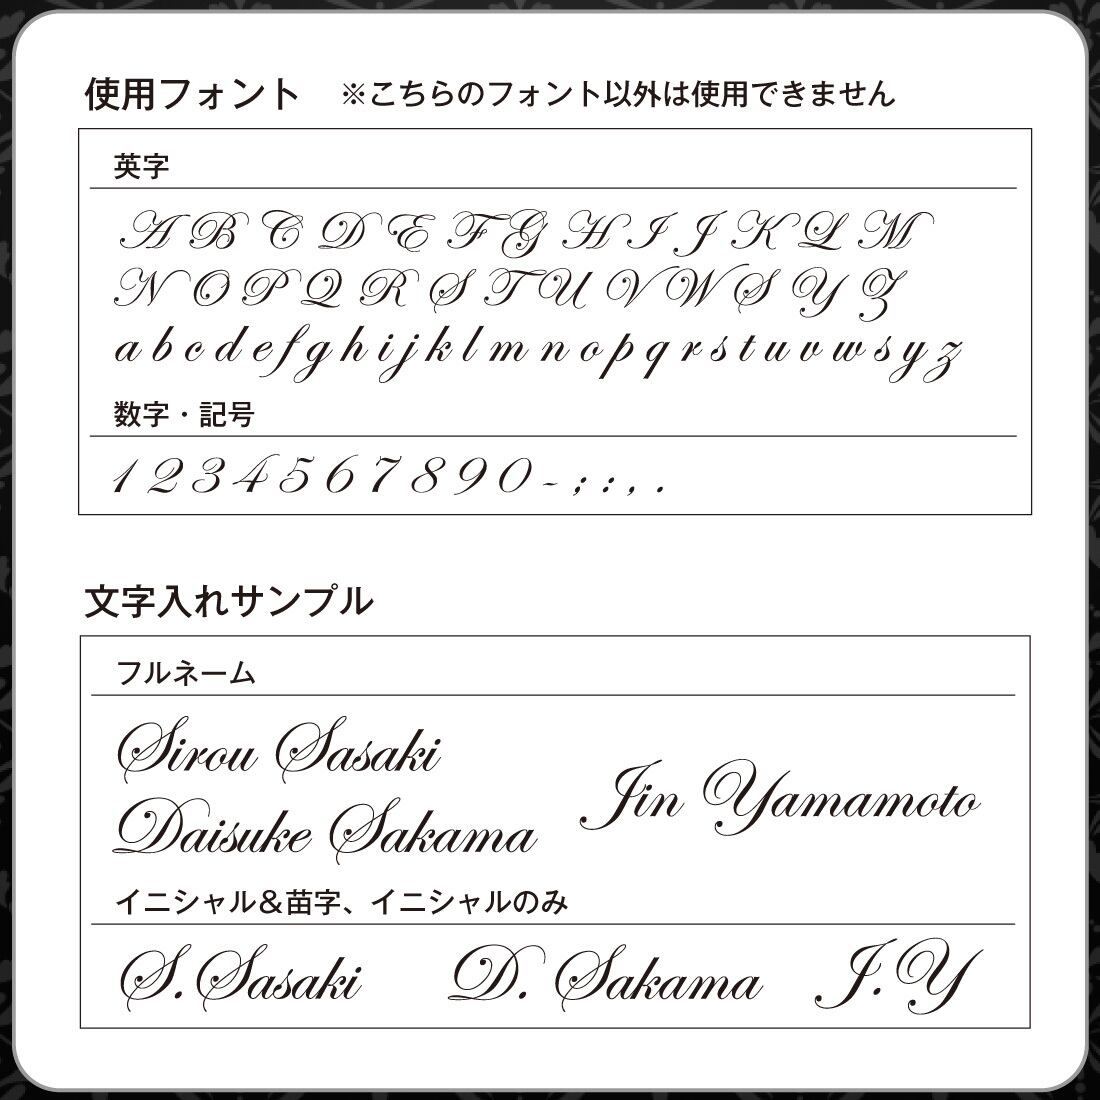 使用フォント ※こちらのフォント以外は使用できません
英字
A B C D E F G H I J K L M
N O P Q R S T U V W S Y Z
a b c d e f g h i j k l m n o p q r s t u v w s y z
数字・記号
1 2 3 4 5 6 7 8 9 0 - ; : , .
文字入れサンプル
フルネーム
Sirou Sasaki
Daisuke Sakama
Jin Yamamoto
イニシャル&苗字、イニシャルのみ
S. Sasaki D. Sakama J.Y